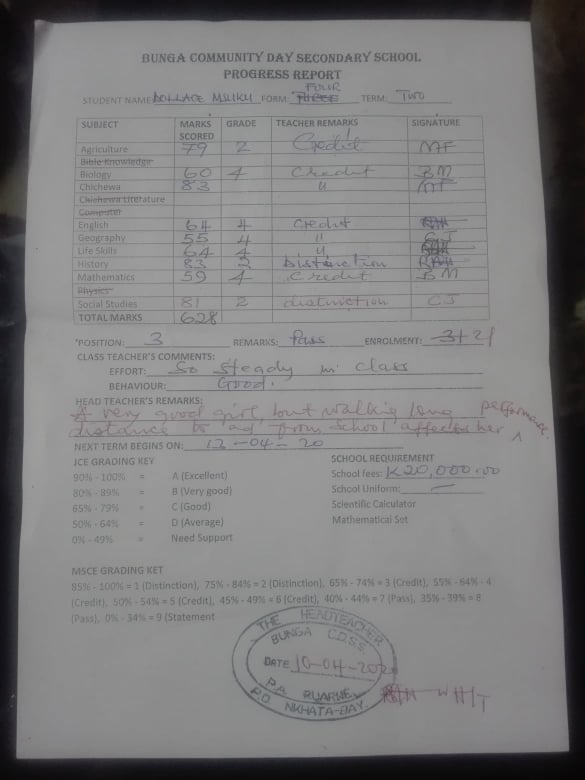 BUNGA COMMUNITY DAY SECONDARY SCHOOL
PROGRESS REPORT
STUDENT NAME DOLLACE MSUKU FORM: THREE FOUR TERM: TWO
SUBJECT MARKS SCORED GRADE TEACHER REMARKS SIGNATURE
Agriculture 79 2 Credit MF
Bible Knowledge
Biology 60 4 Credit BM
Chichewa 83 " MF
Chichewa Literature
Computer
English 64 4 credit
Geography 55 4 " CJ
Life Skills 64 4 "
History 83 2 Distinction
Mathematics 59 4 Credit BM
Physics
Social Studies 81 2 distinction CJ
TOTAL MARKS 628
*POSITION: 3 REMARKS: Pass ENROLMENT: 3+21
CLASS TEACHER'S COMMENTS:
EFFORT: So steady in class
BEHAVIOUR: Good.
HEAD TEACHER'S REMARKS:
A very good girl, but walking long
distance to ad from school affected her performance.
NEXT TERM BEGINS ON: 13-04-20
JCE GRADING KEY
90% - 100% = A (Excellent)
80% - 89% = B (Very good)
65% - 79% = C (Good)
50% - 64% = D (Average)
0% - 49% = Need Support
SCHOOL REQUIREMENT
School fees: K20,000.00
School Uniform: —
Scientific Calculator
Mathematical Set
MSCE GRADING KET
85% - 100% = 1 (Distinction), 75% - 84% = 2 (Distinction), 65% - 74% = 3 (Credit), 55% - 64% - 4
(Credit), 50% - 54% = 5 (Credit), 45% - 49% = 6 (Credit), 40% - 44% = 7 (Pass), 35% - 39% = 8
(Pass), 0% - 34% = 9 (Statement
THE HEADTEACHER
BUNGA C.D.S.S.
DATE 10-04-202
P.A. RUARWE
P.O. NKHATA-BAY